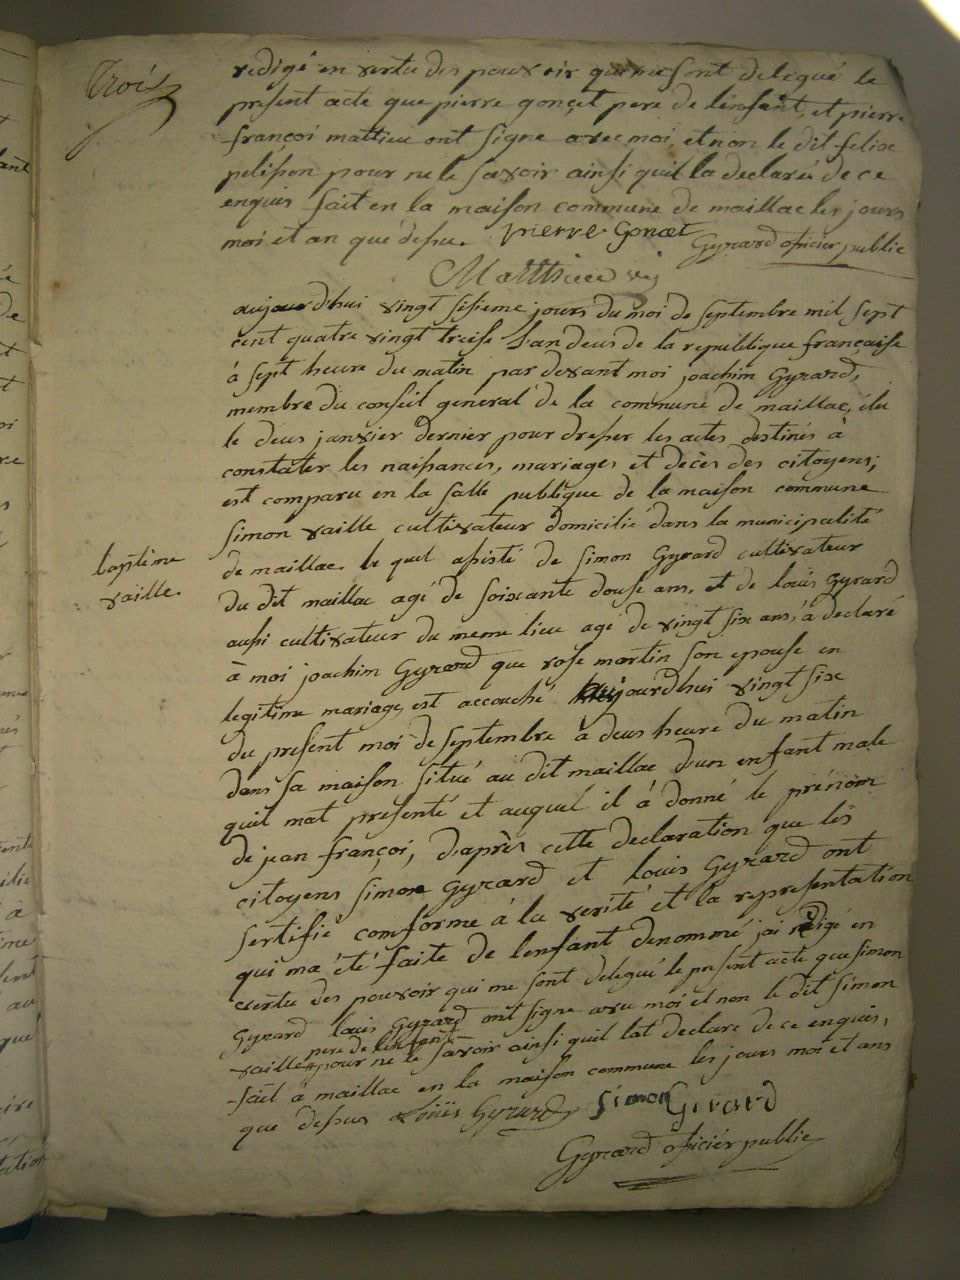 Trois
redigé en vertu des pouvoir qui me sont delegué le
present acte que pierre gonçet pere de lenfant, et pierre
françoi mattieu ont signe avec moi, et non le dit felixe
pelisson pour ne le savoir ainsi quil la declaré de ce
enquis fait en la maison commune de maillac les jours
moi et an que dessu. pierre Gonçet Gyrard oficier public
Matthieu
aujourd'hui vingt sisieme jours du moi de septembre mil sept
cent quatre vingt treise l'an deus de la republique française
à sept heure du matin par devant moi joachim Gyrard,
membre du conseil general de la commune de maillac, élu
le deus janvier dernier pour dresser les actes destinés à
constater les naissances, mariages et décès des citoyens;
est comparu en la salle publique de la maison commune
simon vaille cultivateur domicilié dans la municipalité
de maillac. le quel assisté de simon Gyrard cultivateur
du dit maillac agé de soixante douse ans, et de louis Gyrard
aussi cultivateur du meme lieu agé de vingt six ans, à declaré
à moi joachim Gyrard que rose martin son epouse en
legitime mariage, est accouché aujourdhui vingt six
du present moi de septembre à deus heure du matin
dans sa maison situé au dit maillac d'un enfant male
quil mat presenté et auquel il à donné le prénom
de jean françoi, d'après cette declaration que les
citoyens simon Gyrard et louis Gyrard ont
sertifié comforme à la verité et la representation
qui ma été faite de lenfant denommé jai rédigé en
vertu des pouvoir qui me sont delegué le present acte que simon
Gyrard louis Gyrard ont signe avec moi et non le dit simon
pere de lenfant
vaille pour ne le savoir ainsi quil lat declare de ce enquis,
fait à maillac en la maison commune les jours moi et ans
que dessus Loüis Gyrard simon Girard
Gyrard oficiér public
baptême
vaille.